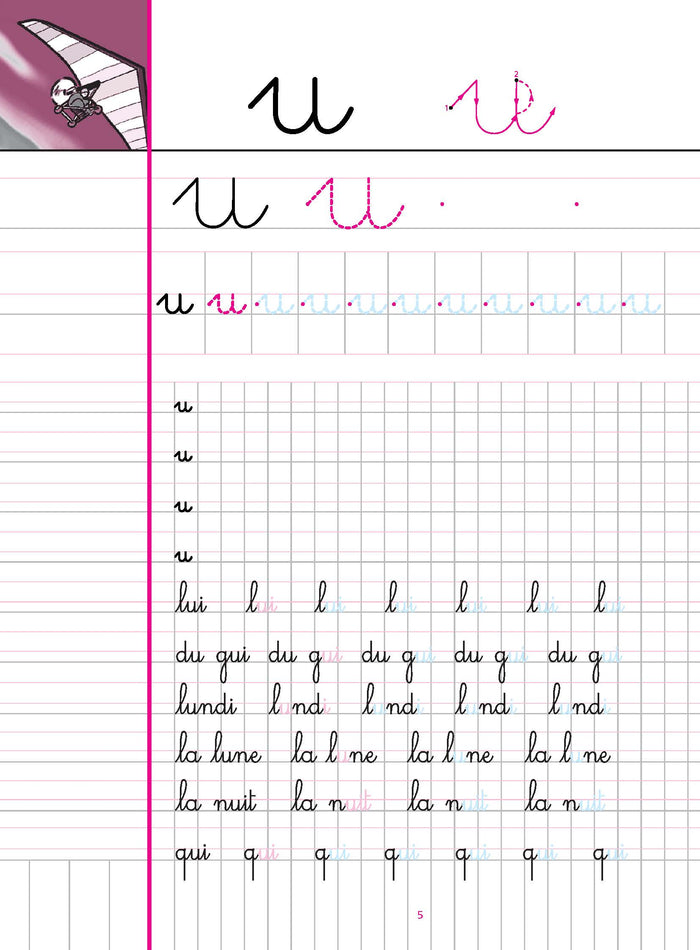 u u 1 2
u u
u u u u u u u u u u u
u
u
u
u
lui lui lui lui lui lui lui
du gui du gui du gui du gui du gui
lundi lundi lundi lundi lundi
la lune la lune la lune la lune
la nuit la nuit la nuit la nuit
qui qui qui qui qui qui qui
5